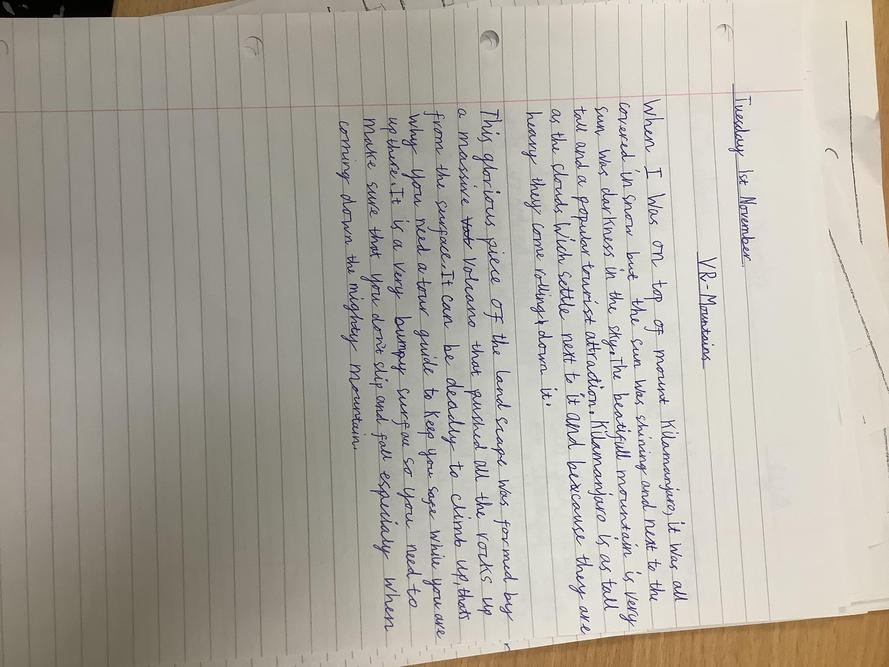 Tuesday 1st November
VR-Mountains
When I was on top of mount Kilamanjaro, it was all
covered in snow but the sun was shining and next to the
sun was darkness in the sky. The beatifull mountain is very
tall and a popular tourist attraction. Kilamanjaro is as tall
as the clouds wich settle next to it and because they are
heavy they come rolling down it.
This glorious piece of the land scape was formed by
a massive volcano that pushed all the rocks up
from the surface. It can be deadly to climb up, thats
why you need a tour guide to keep you safe while you are
up there. It is a very bumpy surface so you need to
make sure that you don't slip and fall especialy when
coming down the mighty mountain.